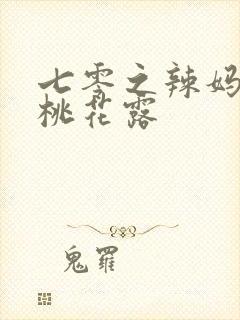 七零之辣妈
桃花露
鬼罗